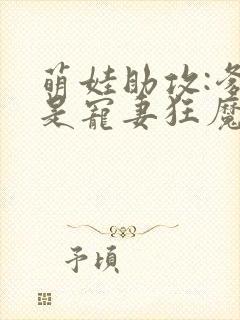 萌娃助攻:爹
是寵妻狂魔
予頃